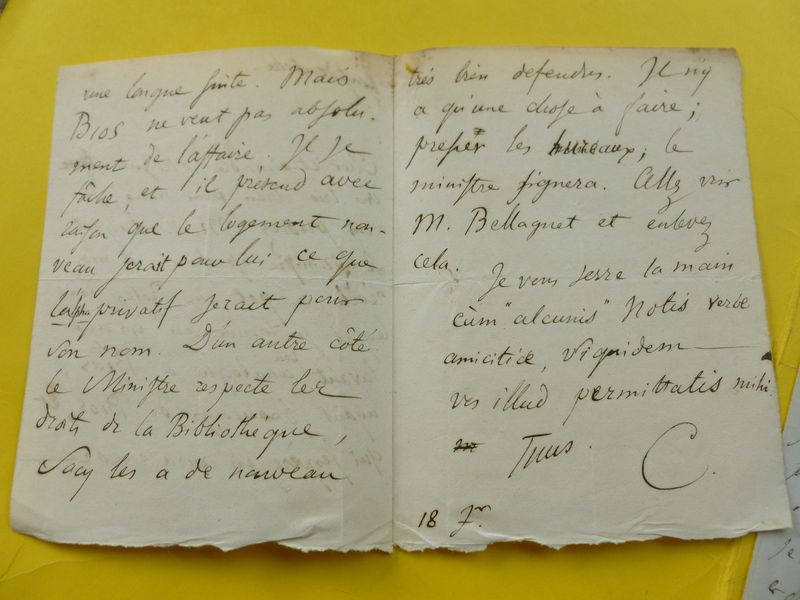 une longue suite. Mais
Bios ne veut pas absolu-
ment de l'affaire. Il se
fâche, et il prétend avec
raison que le logement nou-
veau serait pour lui ce que
l'alpha privatif serait pour
son nom. D'un autre côté
le Ministre respecte les
droits de la Bibliothèque,
Sacy les a de nouveau
très bien defendus. Il n'y
a qu'une chose à faire;
presser les bureaux; le
ministre signera. Allez voir
M. Bellaguet et enlevez
cela.
Je vous serre la main
cùm "alcunis" Notis verbe
amicitiæ, siquidem
vos illud permittatis mihi.
Tuus.
C.
18 Jr.